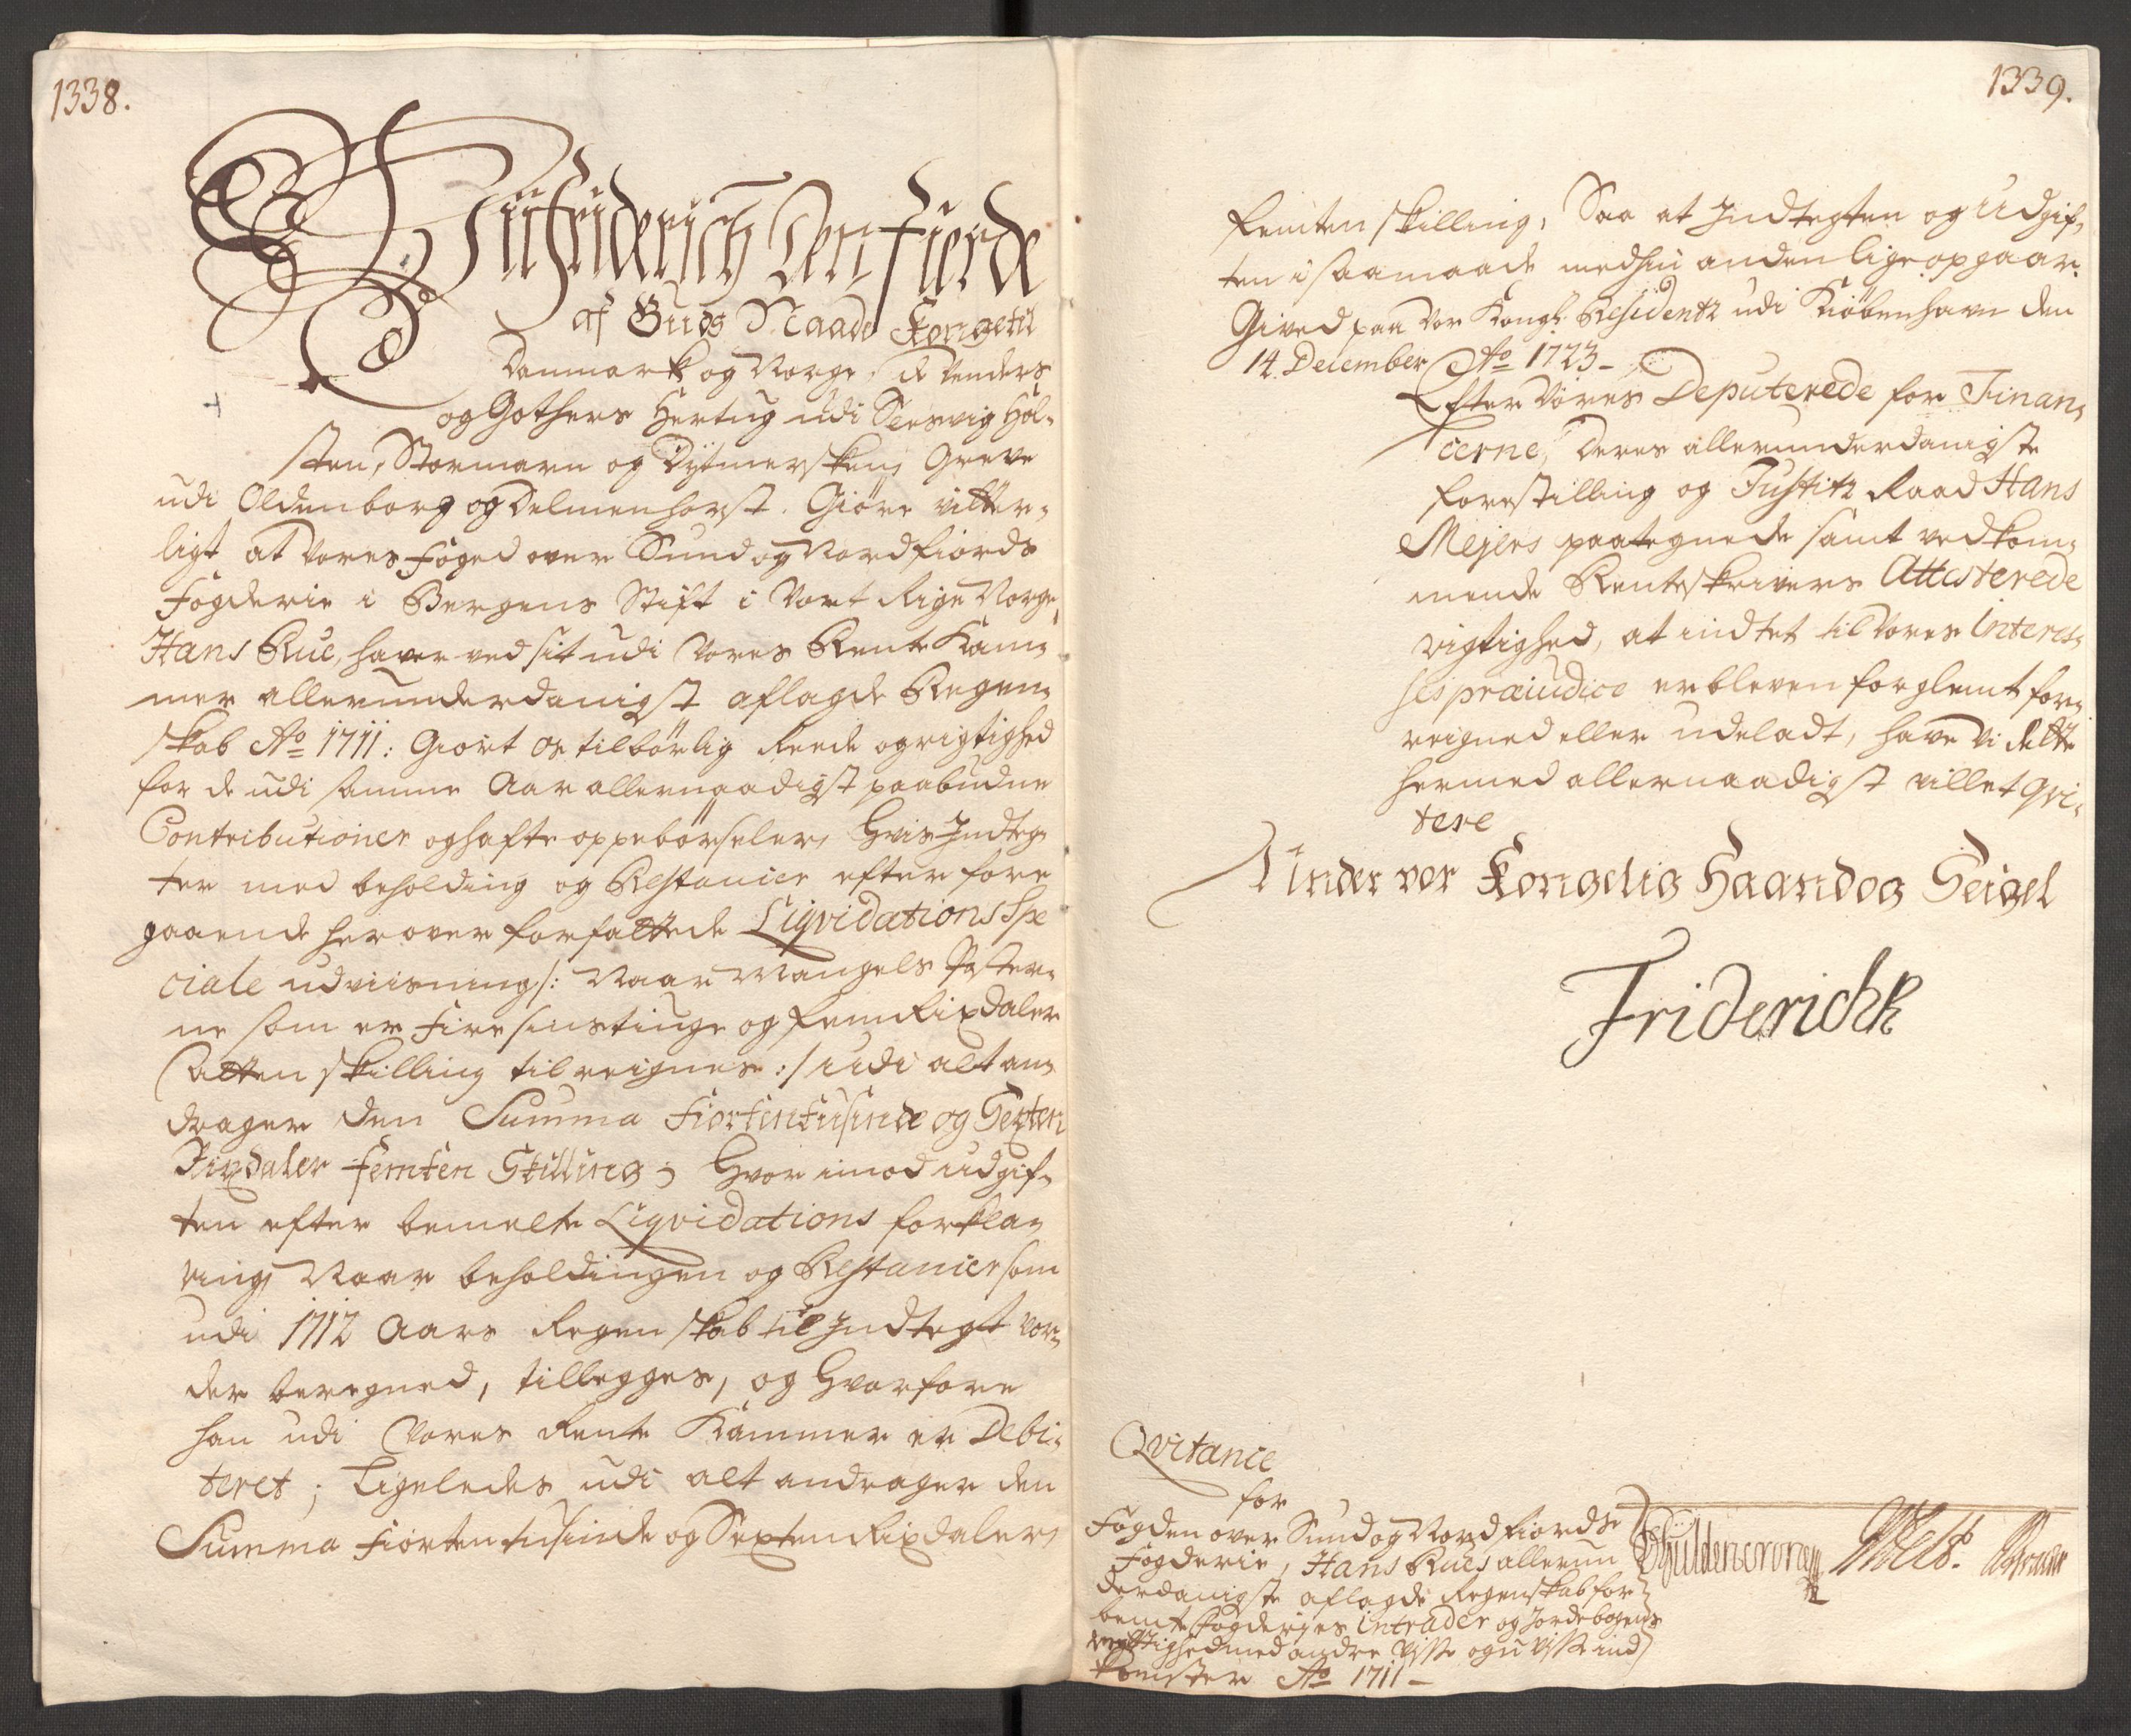 1338.
Wii Friderich Den Fierde
af Guds Naade Konge til
Danmark og Norge, de Venders
og Gothers Hertug udi Slesvig Hol-
sten, Stormarn og Dytmersken, Greve
udi Oldenborg og Delmenhorst. Giöre vitter-
ligt at Vores Foged over Sund og Nordfiords
Fogderie i Bergens Stift i Vort Rige Norge,
Hans Rue, haver ved sit udi Vores Rente Kam-
mer allerunderdanigst aflagde Regen-
skab Ao 1711: Giort os tilbörlig Reede og rigtighed
for de udi samme Aar allernaadigst paabudne
Contributioner og hafte oppebörseler, Hvis Indteg-
ter med beholding og Restancier efter fore
gaaende her over forfattede Liqvidations Spe
ciale udviisning /: Naar Mangels Poster-
ne som er Fire sinstiuge og fem Rixdaler
Otten skilling tilreignes :/ udi alt an-
drager den Summa Fiortentusinde og Sexten
Rixdaler femten Skilling; Hvor imod udgif-
ten efter bemelte Liqvidations forkla-
ring, Naar beholdingen og Restancier som
udi 1712 Aars Regenskab til Indtegt vor-
der beregned, tillegges, og Hvorfore
han udi Vores Rente Kammer er Debi-
teret; Ligeledes udi alt andrager den
Summa Fiorten tusinde og Sexten Rixdaler,
1339.
femten skilling, Saa at Indtegten og Udgif-
ten i saamaade med hin anden lige opgaar.
Gived paa Vor Kongl. Residentz udi Kiöbenhavn den
14. December Ao 1723-
Efter Vores Deputerede for Finan-
cerne, deres allerunderdanigste
forestilling og Justitz Raad Hans
Mejers paategnede samt vedkom-
mende Renteskrivers Attesterede
rigtighed, at indtet til Vores Interes-
ses præiudice er bleven forglemt for-
reigned eller udeladt, have Vi dette
hermed allernaadigst villet qvi-
tere
Under vor Kongelig Haand og Seigel
Friderich R
Qvitance
for
Fogden over Sund og Nordfiords
Fogderie, Hans Rues allerun
derdanigste aflagde Regenskab for
bemte Fogderies intrader og Jordebogens
rettighed med andre Visse og u Visse ind
komster Ao 1711-
Güldencrone